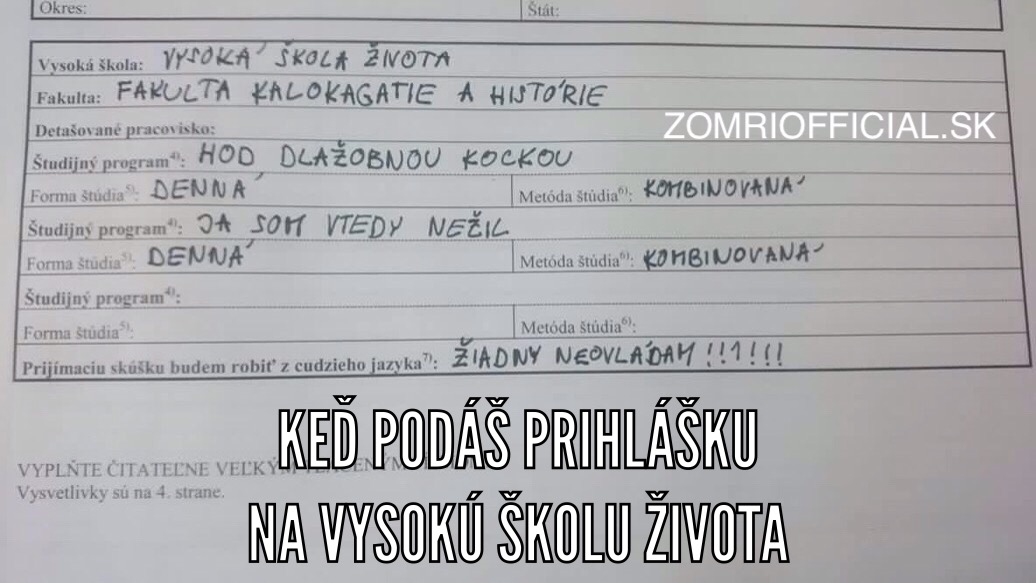 Okres:
Štát:
Vysoká škola: VYSOKÁ ŠKOLA ŽIVOTA
Fakulta: FAKULTA KALOKAGATIE A HISTÓRIE
Detašované pracovisko:
ZOMRIOFFICIAL.SK
Študijný program4): HOD DLAŽOBNOU KOCKOU
Forma štúdia5): DENNÁ Metóda štúdia6): KOMBINOVANÁ
Študijný program4): JA SOM VTEDY NEŽIL
Forma štúdia5): DENNÁ Metóda štúdia6): KOMBINOVANÁ
Študijný program4):
Forma štúdia5): Metóda štúdia6):
Prijímaciu skúšku budem robiť z cudzieho jazyka7): ŽIADNY NEOVLÁDAM !!1!!!
KEĎ PODÁŠ PRIHLÁŠKU
VYPLŇTE ČITATEĽNE VEĽKÝM
Vysvetlivky sú na 4. strane.
NA VYSOKÚ ŠKOLU ŽIVOTA